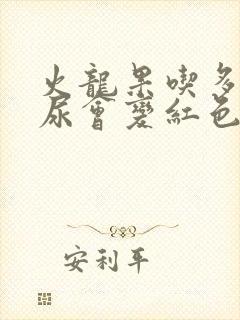 火龍果喫多
尿會變紅色
安利平